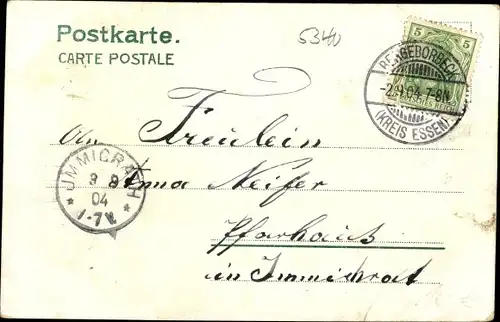 Postkarte.
CARTE POSTALE
5340
5 5
BERGEBORBECK
-2.9.04.7-8N.
(KREIS ESSEN)
An Fräulein
Anna Neifer
Pfarrhaus
in Immichrat
IMMIGRATH
3 9
04